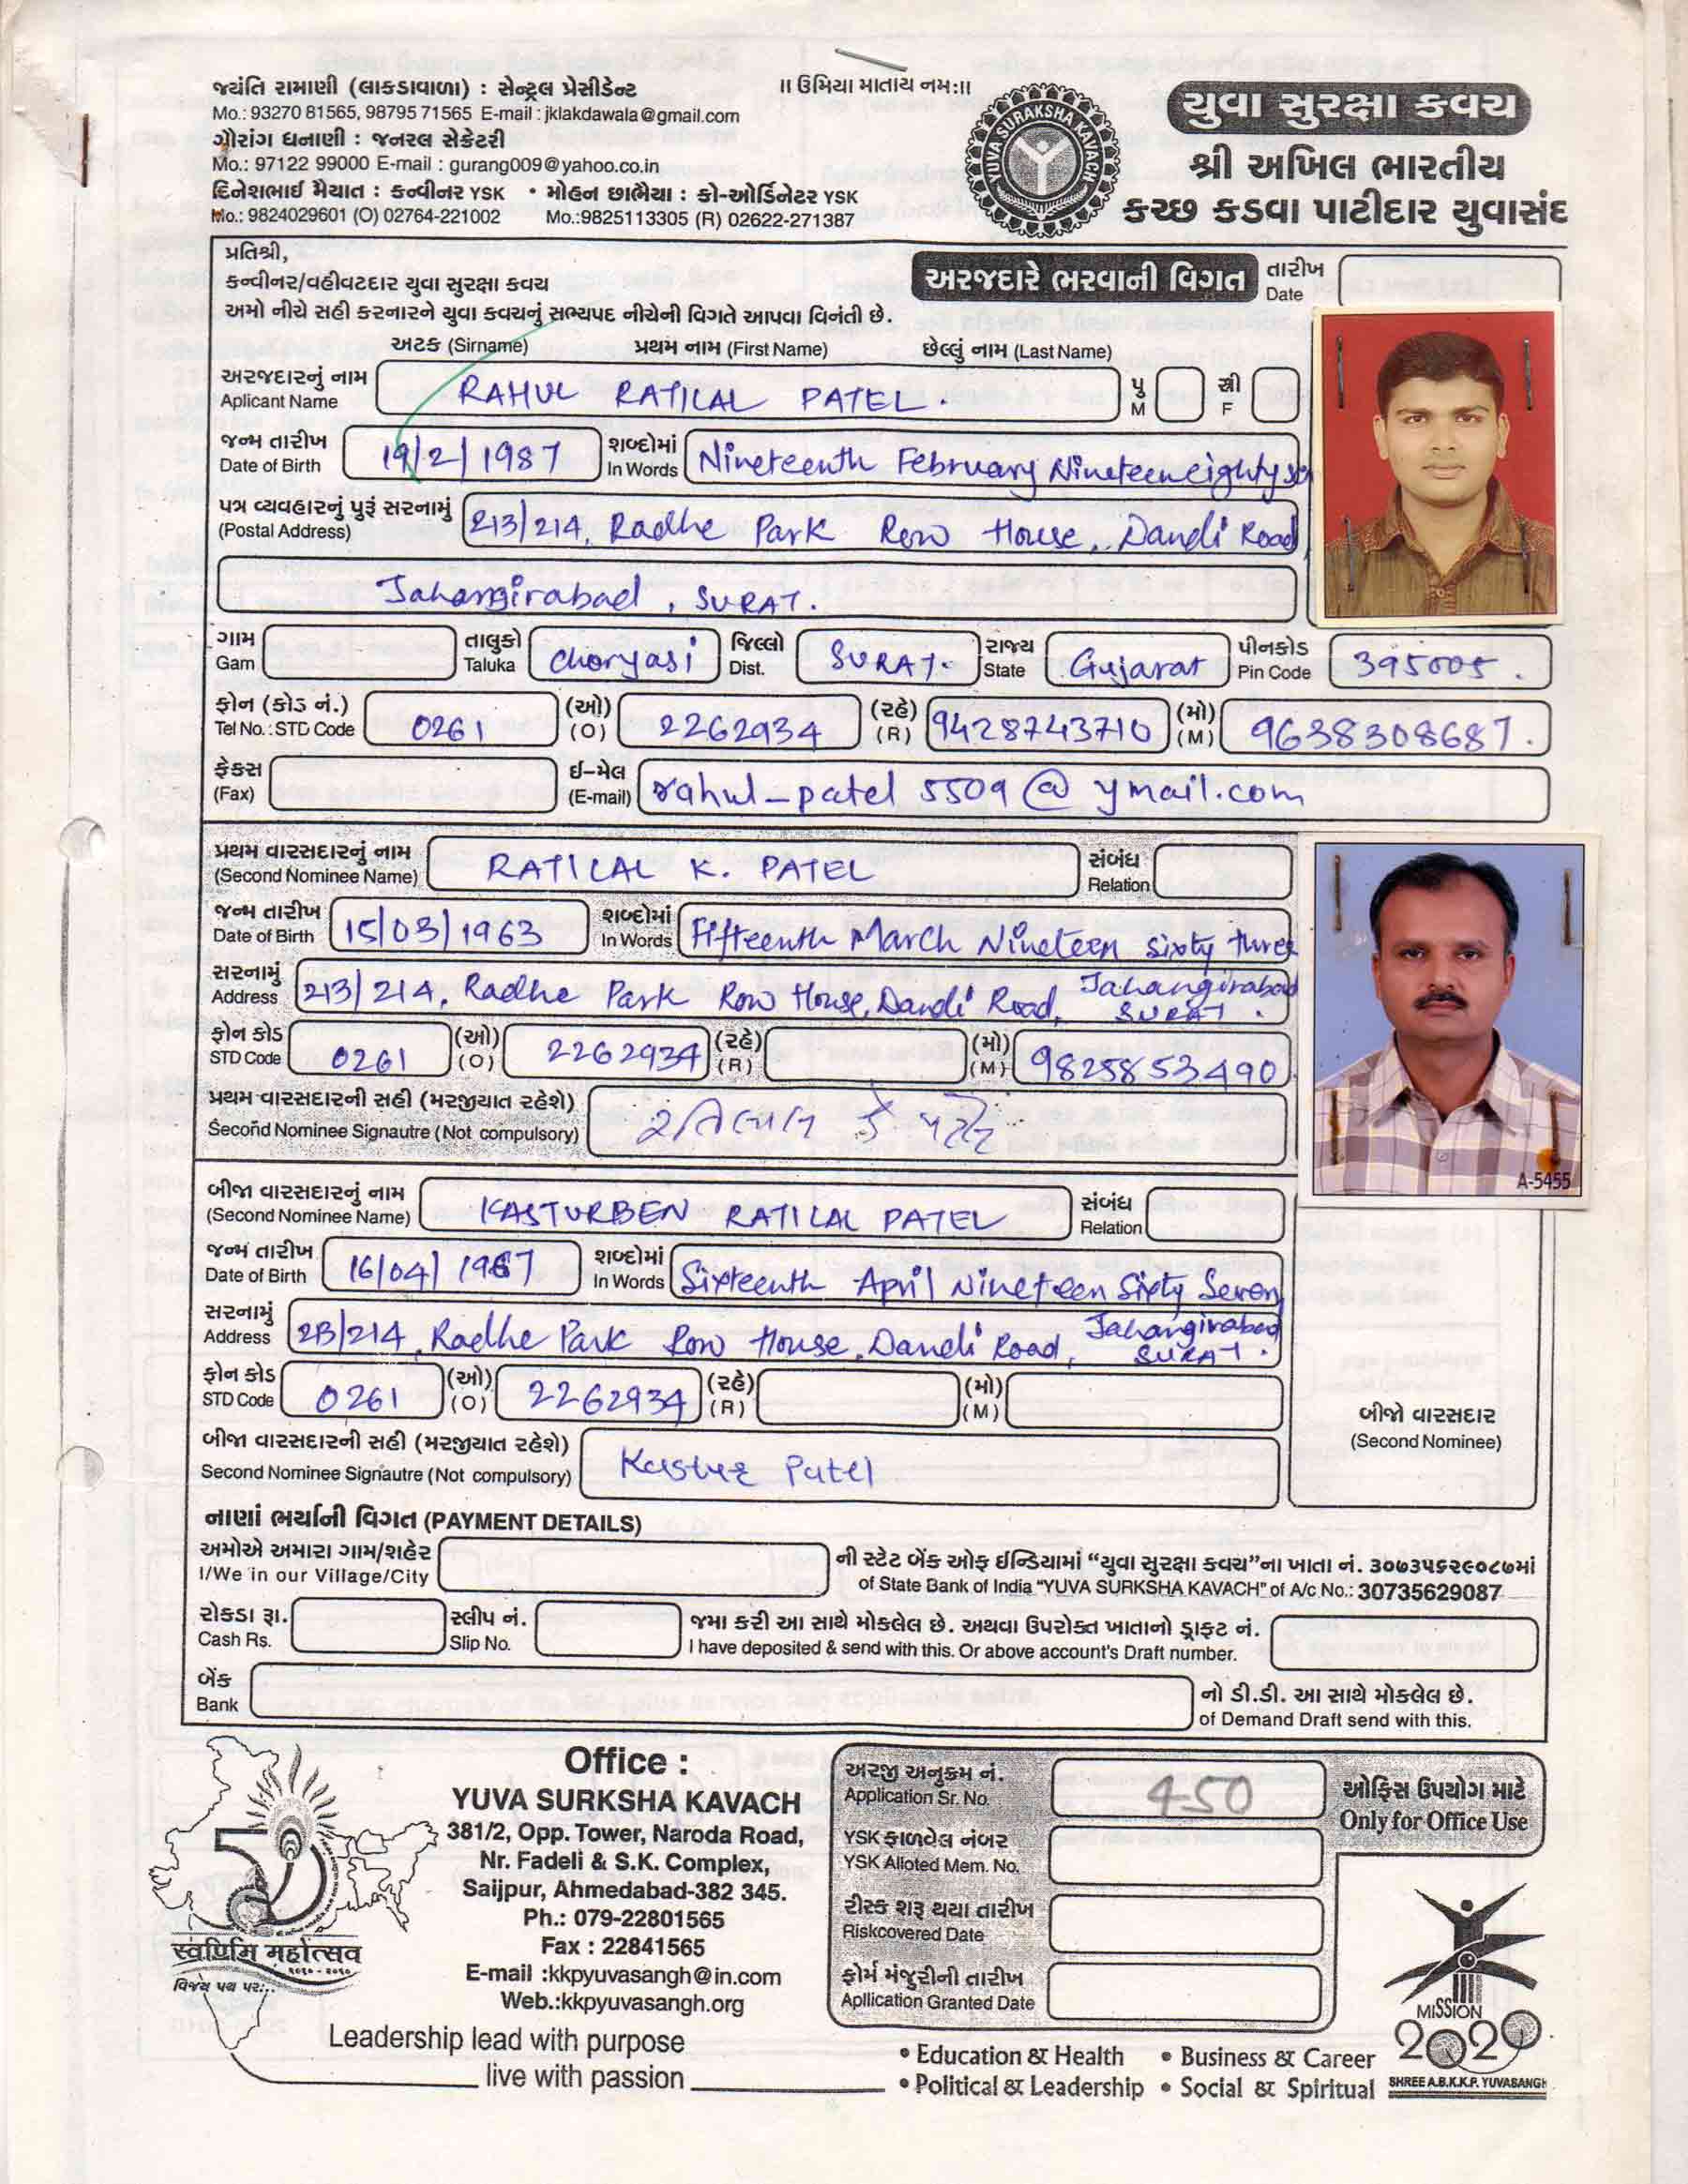 જયંતિ રામાણી (લાકડાવાળા) : સેન્ટ્રલ પ્રેસીડેન્ટ
Mo.: 93270 81565, 98795 71565 E-mail : jklakdawala@gmail.com
ગૌરાંગ ધનાણી : જનરલ સેક્રેટરી
Mo.: 97122 99000 E-mail : gurang009@yahoo.co.in
દિનેશભાઈ મૈયાત : કન્વીનર YSK • મોહન છાભૈયા : કો-ઓર્ડિનેટર YSK
Mo.: 9824029601 (O) 02764-221002 Mo.:9825113305 (R) 02622-271387
॥ ઉમિયા માતાય નમઃ॥
YUVA SURAKSHA KAVACH
યુવા સુરક્ષા કવચ
શ્રી અખિલ ભારતીય
કચ્છ કડવા પાટીદાર યુવાસંઘ
પ્રતિશ્રી,
કન્વીનર/વહીવટદાર યુવા સુરક્ષા કવચ
અરજદારે ભરવાની વિગત તારીખ Date
અમો નીચે સહી કરનારને યુવા કવચનું સભ્યપદ નીચેની વિગતે આપવા વિનંતી છે.
અટક (Sirname) પ્રથમ નામ (First Name) છેલ્લું નામ (Last Name)
અરજદારનું નામ Aplicant Name RAHUL RATILAL PATEL. પુ M સ્ત્રી F
જન્મ તારીખ Date of Birth 19/2/1987 શબ્દોમાં In Words Nineteenth February Nineteen eighty se
પત્ર વ્યવહારનું પુરૂં સરનામું (Postal Address) 213/214, Radhe Park Row House, Dandi Road,
Jahangirabad, SURAT.
ગામ Gam તાલુકો Taluka choryasi જિલ્લો Dist. SURAT. રાજ્ય State Gujarat પીનકોડ Pin Code 395005.
ફોન (કોડ નં.) Tel No.: STD Code 0261 (ઓ) (O) 2262934 (રહે) (R) 9428743710 (મો) (M) 9638308687.
ફેક્સ (Fax) ઈ-મેલ (E-mail) rahul_patel5509@ymail.com
પ્રથમ વારસદારનું નામ (Second Nominee Name) RATILAL K. PATEL સંબંધ Relation
જન્મ તારીખ Date of Birth 15/03/1963 શબ્દોમાં In Words Fifteenth March Nineteen sixty three
સરનામું Address 213/214, Radhe Park Row House, Dandi Road, Jahangirabad SURAT.
ફોન કોડ STD Code 0261 (ઓ) (O) 2262934 (રહે) (R) (મો) (M) 9825853490
પ્રથમ વારસદારની સહી (મરજીયાત રહેશે)
Second Nominee Signautre (Not compulsory) રતિલાલ કે પટેલ
A-5455
બીજા વારસદારનું નામ (Second Nominee Name) KASTURBEN RATILAL PATEL સંબંધ Relation
જન્મ તારીખ Date of Birth 16/04/1967 શબ્દોમાં In Words Sixteenth April Nineteen Sixty Seven
સરનામું Address 213/214, Radhe Park Row House, Dandi Road, Jahangirabad SURAT.
ફોન કોડ STD Code 0261 (ઓ) (O) 2262934 (રહે) (R) (મો) (M)
બીજો વારસદાર
(Second Nominee)
બીજા વારસદારની સહી (મરજીયાત રહેશે)
Second Nominee Signautre (Not compulsory) Kastur Patel
નાણાં ભર્યાની વિગત (PAYMENT DETAILS)
અમોએ અમારા ગામ/શહેર ની સ્ટેટ બેંક ઓફ ઈન્ડિયામાં “યુવા સુરક્ષા કવચ”ના ખાતા નં. ૩૦૭૩૫૬૨૯૦૮૭માં
I/We in our Village/City of State Bank of India “YUVA SURKSHA KAVACH” of A/c No.: 30735629087
રોકડા રૂા. સ્લીપ નં. જમા કરી આ સાથે મોકલેલ છે. અથવા ઉપરોક્ત ખાતાનો ડ્રાફ્ટ નં.
Cash Rs. Slip No. I have deposited & send with this. Or above account's Draft number.
બેંક નો ડી.ડી. આ સાથે મોકલેલ છે.
Bank of Demand Draft send with this.
Office :
YUVA SURKSHA KAVACH
381/2, Opp. Tower, Naroda Road,
Nr. Fadeli & S.K. Complex,
Saijpur, Ahmedabad-382 345.
Ph.: 079-22801565
Fax : 22841565
E-mail :kkpyuvasangh@in.com
Web.:kkpyuvasangh.org
50
स्वर्णिम महोत्सव
૨૦૧૦ - ૨૦૧૦
વિજય પથ પર...
Leadership lead with purpose
live with passion
અરજી અનુક્રમ નં.
Application Sr. No. 450
ઓફિસ ઉપયોગ માટે
Only for Office Use
YSK ફાળવેલ નંબર
YSK Alloted Mem. No.
રીસ્ક શરૂ થયા તારીખ
Riskcovered Date
ફોર્મ મંજુરીની તારીખ
Apllication Granted Date
MISSION
2020
SHREE A.B.K.K.P. YUVASANGH
• Education & Health • Business & Career
• Political & Leadership • Social & Spiritual